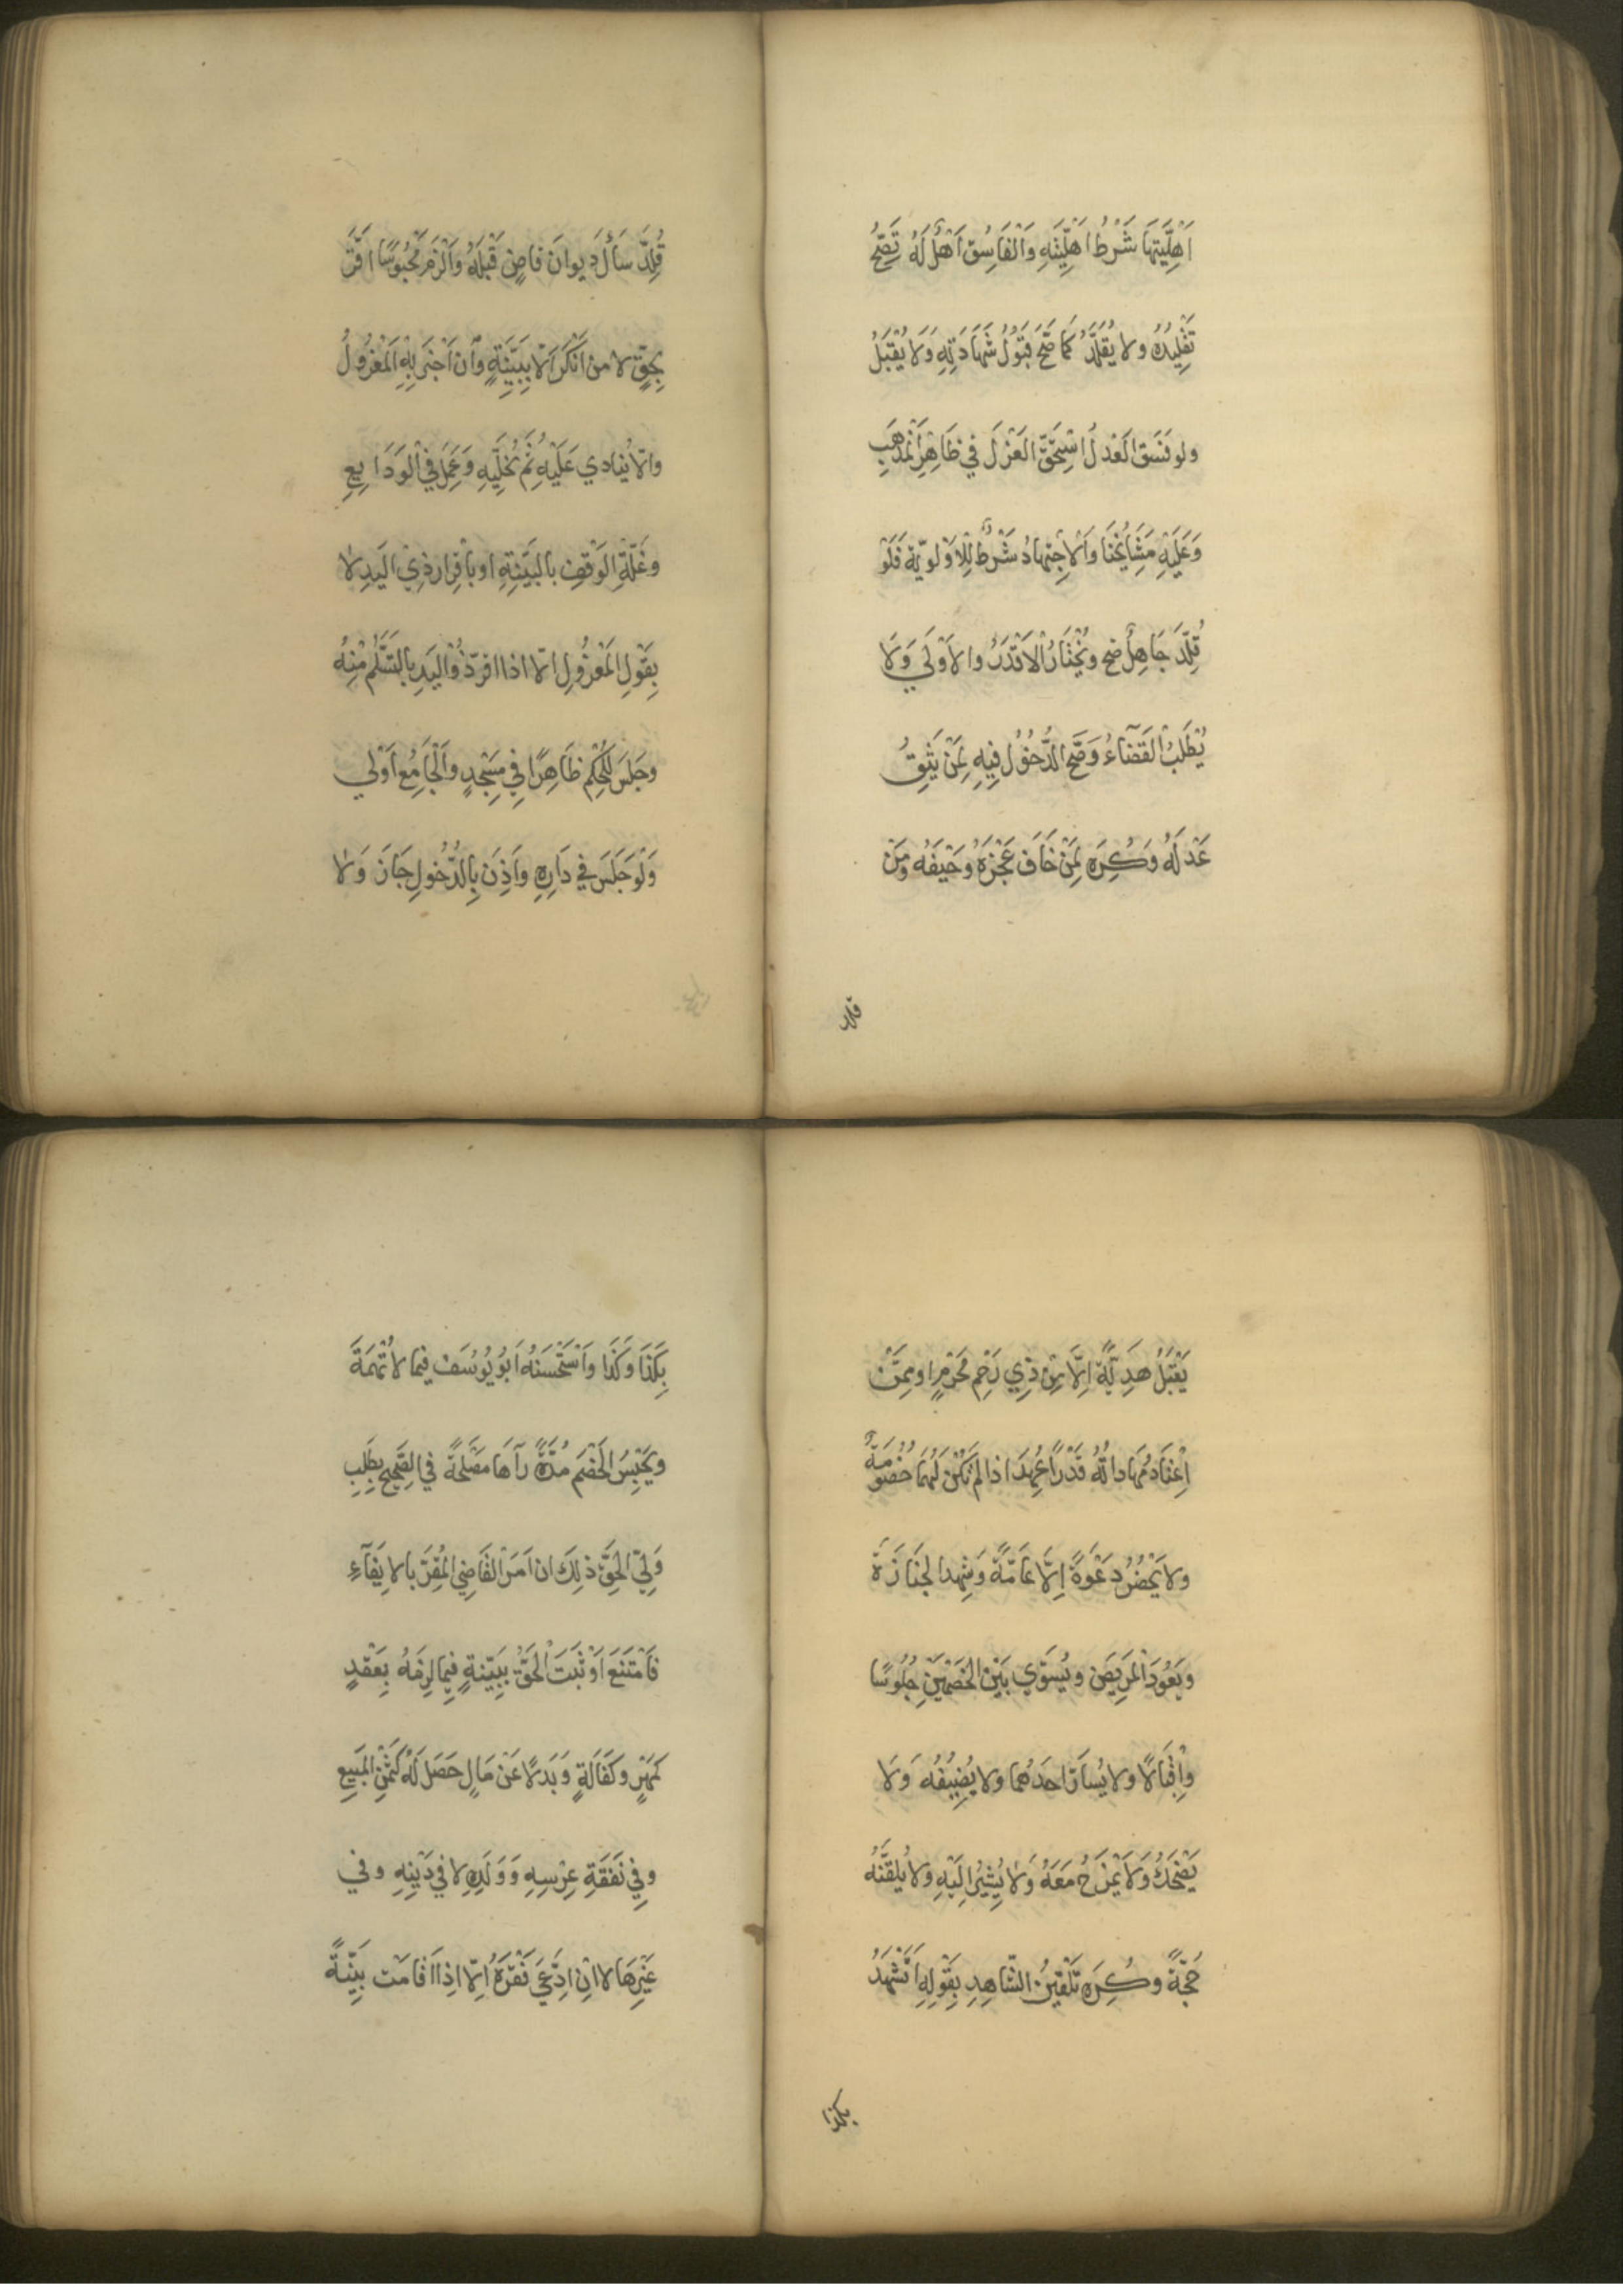 اَهْلِيَّتِهَا شَرْطُ اَهْلِيَّتِهِ وَالْفَاسُقِ اَهْلٌ لَهُ تَصِحُّ
تَقْلِيدُهُ ولا يُقَلَّدُ كَمَا صَحَّ قَبُوْلُ شَهَادَتِهِ وَلَا يُقْبَلُ
ولو فَسَقَ الْعَدْلُ اسْتِحَقَّ الْعَزْلَ فِي ظَاهِرِ الْمَذْهَبِ
وَعَلَيْهِ مَشَايُخُنَا وَالْاجِتِهَادُ شَرْطٌ لِلْاَوْلَوِيَّةِ فَلَوْ
قُلِّدَ جَاهِلٌ صح ويُخْتَارُ الْاَقْدَرُ والاَوْلَي وَلَا
يُطْلَبُ الْقَضَآءُ وَصَحَّ الدُّخُوْلُ فِيهِ لِمَنْ يَثِقُ
عَدْلَهُ وَكُرِهَ لِمَنْ خَافَ عَجْزَهُ وَحَيْفَهُ وَمَنْ
قلد
قُلِّدَ سَأَلَ دِيوانَ قاضٍ قَبْلَهُ وَاَلْزَمَ مَحْبُوسًا اقَرَّ
بِحَقٍّ لا مَن اَنْكَرَ اَلّا بِبَيِّنَةٍ وَاَن اَخْبَرَ بِهِ الْمَعْزُولُ
والّا يُنادي عَلَيْهِ ثُمَّ يُخَلِّيهِ وَعَمِلَ فِي الْوَدَايِعِ
وغَلَّةِ الْوَقْفِ بالبَيِّنَةِ او بأقِرارِ ذِيْ اليَدِ لا
بِقَوْلِ الْمَعْزُولِ الّا اذا اقرّ ذُوْ اليَدِ بِالتَّسَلُّمِ مْنِهُ
وجَلَسَ لِلْحُكْمِ ظَاهِرًا فِي مَسْجِدٍ والْجَامِعُ اَوْلي
وَلَوْ جَلَسَ فِي دَارِهِ وَاَذِنَ بِالدُّخُولِ جَازَ وَلا
يَقْبَلُ هَدِيَّةً اِلَّا مِنْ ذِي رَحِمٍ مَحْرَمٍ او مِمَّنْ
اِعْتَادَ مُهاداتُهُ قَدْرًا عُهِدَ اذا لَمْ تَكُنْ لَهُمَا خُصُومَةٌ
ولا يَحْضُرُ دَعْوَةً اِلَّا عَامَّةً وَشِهد الجَنَازَةَ
ويَعُوْدَ الْمَرِيضَ ويُسَوِّي بَيْنَ الْخَصْمَيْنِ جُلُوسًا
وَاِقْبَالًا ولا يُسارّ احَدَهُما ولا يُضِيْفُهُ وَلَا
يَضْحَكُ وَلَا يَمْزَحُ مَعَهُ وَلَا يُشِيْرُ اِلَيْهِ ولا يُلَقِّنُهُ
حُجَّةً وَكُرِهَ تَلْقِينُ الشّاهِدِ بِقَوْلِهِ اَتَشْهَدُ
بكذا
بِكَذَا وَكَذَا وَاَسْتَحْسَنَهُ اَبُو يُوْسُفَ فِيمَا لا تُهْمَةَ
ويَحْبِسُ الْخَصْمَ مُدَّةً رَآهَا مَصْلَحَةً فِي الصَّحِيْحِ بِطَلَبِ
وَلِيِّ الْحَقِّ ذلِكَ ان اَمَرَ الْقَاضِي الْمُقِرَّ بالايَفَآءِ
فَامْتَنَعَ اَوْ ثَبَتَ الْحَقُّ بِبَيِّنَةٍ فِيمَا لَزِمَهُ بِعَقْدٍ
كَمَهْرٍ وكَفَالَةٍ وَبَدَلًا عَنْ مَالٍ حَصَلَ لَهُ كَثَمَنِ الْمَبِيعِ
وفِي نَفَقَةِ عِرْسِهِ وَوَلَدِهِ لا فِي دَيْنِهِ وفي
غَيْرِهَا لا اِنْ اِدَّعَي فَقْرَهُ اِلّا اِذَا قَامَتْ بَيِّنَةً